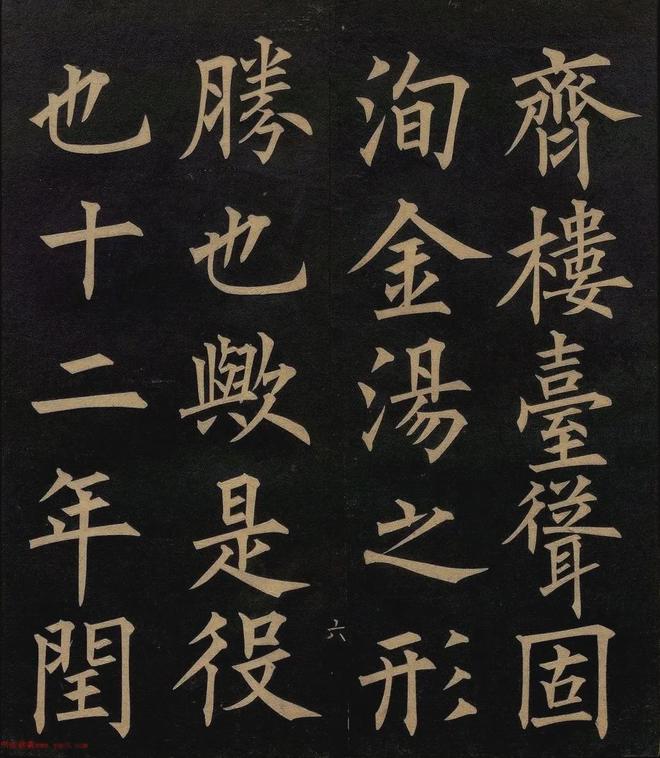 齊樓臺聳固
洵金湯之形
勝也歟是役
也十二年閏
六